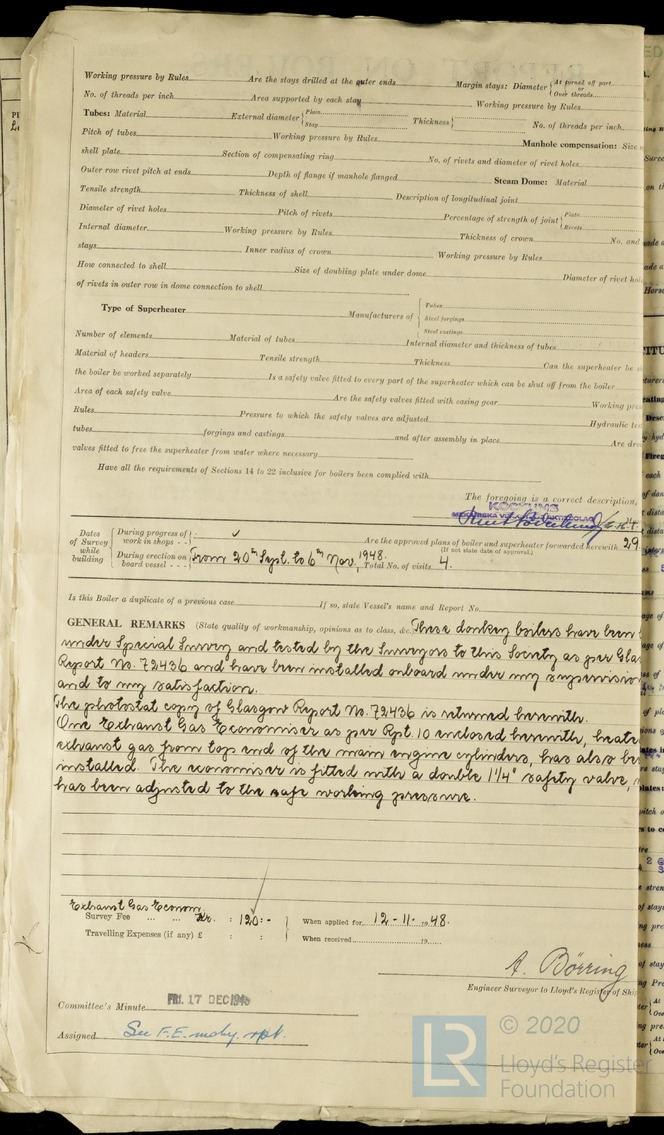 Working pressure by Rules Are the stays drilled at the outer ends Margin stays: Diameter { At turned off part or Over threads
No. of threads per inch Area supported by each stay Working pressure by Rules
Tubes: Material External diameter { Plain Stay Thickness } No. of threads per inch
Pitch of tubes Working pressure by Rules Manhole compensation: Size
shell plate Section of compensating ring No. of rivets and diameter of rivet holes
Outer row rivet pitch at ends Depth of flange if manhole flanged Steam Dome: Material
Tensile strength Thickness of shell Description of longitudinal joint
Diameter of rivet holes Pitch of rivets Percentage of strength of joint { Plate Rivets
Internal diameter Working pressure by Rules Thickness of crown No. and
stays Inner radius of crown Working pressure by Rules
How connected to shell Size of doubling plate under dome Diameter of rivet
of rivets in outer row in dome connection to shell
Type of Superheater Manufacturers of { Tubes Steel forgings Steel castings
Number of elements Material of tubes Internal diameter and thickness of tubes
Material of headers Tensile strength Thickness Can the superheater be
the boiler be worked separately Is a safety valve fitted to every part of the superheater which can be shut off from the boiler
Area of each safety valve Are the safety valves fitted with easing gear Working
Rules Pressure to which the safety valves are adjusted Hydraulic
tubes forgings and castings and after assembly in place Are
valves fitted to free the superheater from water where necessary
Have all the requirements of Sections 14 to 22 inclusive for boilers been complied with
The foregoing is a correct description,
KOCKUMS
Dates of Survey while building { During progress of work in shops - - } ✓ Are the approved plans of boiler and superheater forwarded herewith 29
(If not state date of approval.)
{ During erection on board vessel - - - } From 20th Sept. to 6th Nov, 1948. Total No. of visits 4.
Is this Boiler a duplicate of a previous case If so, state Vessel's name and Report No.
GENERAL REMARKS (State quality of workmanship, opinions as to class, &c. These donkey boilers have been
under Special Survey and tested by the Surveyors to this Society as per
Report No. 72436 and have been installed onboard under my supervision
and to my satisfaction.
The photostat copy of Glasgow Report No. 72436 is returned herewith.
One Exhaust Gas Economiser as per Rpt. 10 enclosed herewith,
exhaust gas from top end of the main engine cylinders, has also
installed. The economiser is fitted with a double 1 1/4" safety valve,
has been adjusted to the safe working pressure.
Exhaust Gas Econom.
Survey Fee ... ... Kr. : 120:- } When applied for 12-11- 1948.
Travelling Expenses (if any) £ : : When received 19
A. Börring
Engineer Surveyor to Lloyd's Register of
Committee's Minute FRI. 17 DEC 1948
Assigned See F.E. mchy. rpt.
LR © 2020
Lloyd's Register
Foundation